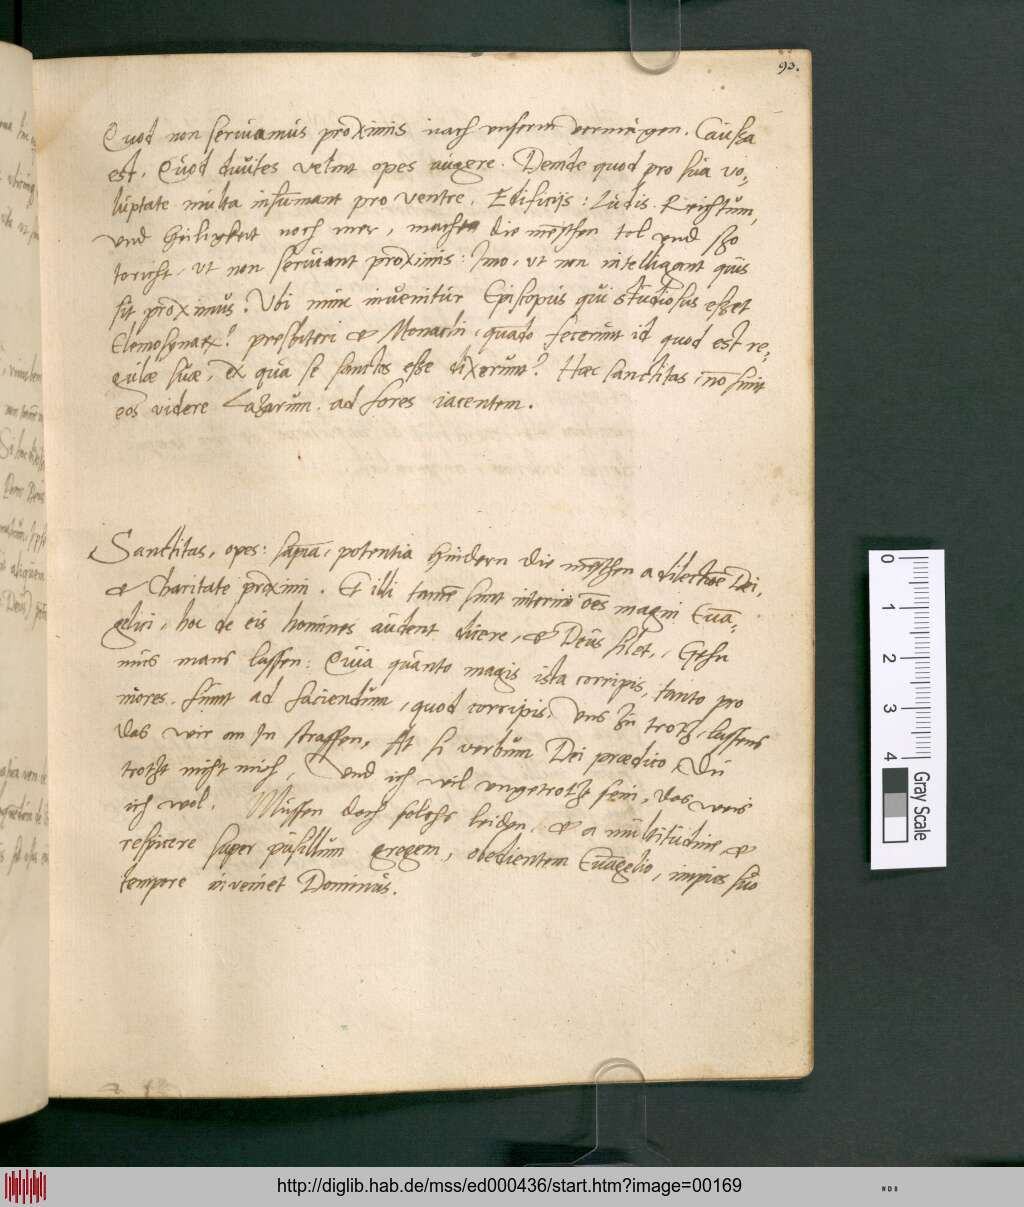 93.
Quod non seruiamus proximis nach unserm vermügen. Caussa
est, Quod diuites velint opes augere. Deinde quod pro sua vo,
luptate multa insumant pro ventre, Edificijs: Ludis. Reichtum,
und Heiligkeit noch mer, machen die mēschen tol und sso
toricht, ut non seruiant proximis: Imo, ut non intelligant quis
sit proximus. Ubi nunc inuenitur Episcopus qui studiosus esset
Elemosynaru? presbiteri et Monachi, quādo fecerunt id quod est re,
gulæ suæ, ex qua se sanctos esse dixerunt? Hæc sanctitas, nō sinit
eos videre Lazarum ad fores iacentem.
Sanctitas, opes: sapīa, potentia hindern die mēschen a dilectiōe Dei,
et Charitate proximi. Et illi tamē sunt interim oēs magni Euā,
gelici, hoc de eis homines audent dicere, et Deus silet,
mus mans lassen: Quia quanto magis ista corripis, tanto pro
niores sunt ad faciendum, quod corripis. Uns zu trotz lassens
das wir an In straffen, At si verbum Dei prædico, Du
trotzt nicht mich, Und ich wil ungetrotzt sein, das weis
ich wol. Müssen doch solchs leiden, et a multitudine et
respicere super pusillum gregem, obedientem Euāgelio, impios suo
tempore inveniet Dominus.
0
1
2
3
4
Gray Scale
http://diglib.hab.de/mss/ed000436/start.htm?image=00169